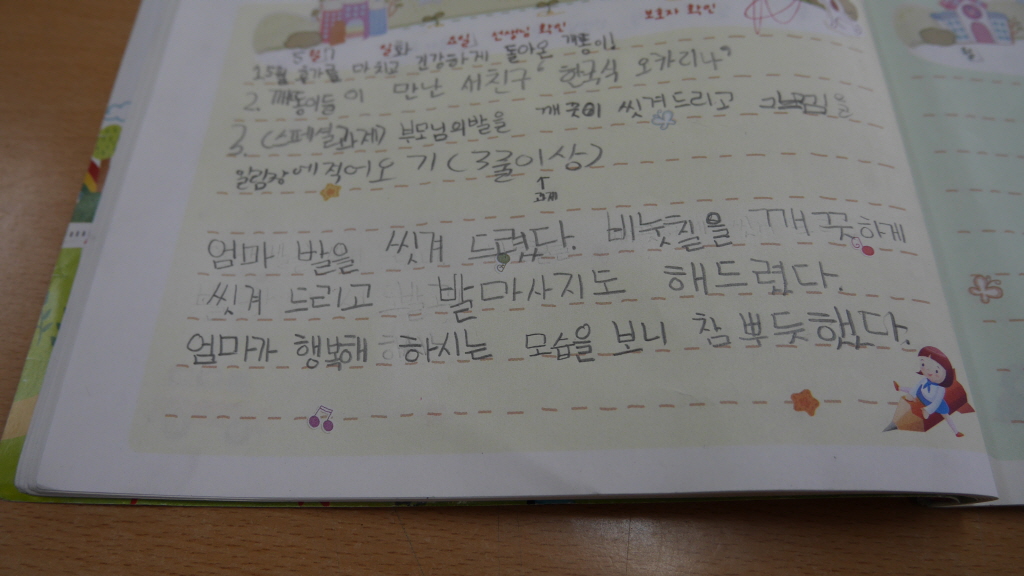 월 일 요일 선생님 확인 보호자 확인
1.5월 휴가를 마치고 건강하게 돌아온 깨동이!
2. 깨동이들이 만난 새친구 '한국식 오카리나'
3. (스페셜과제) 부모님의발을 깨끗이 씻겨드리고 느낌을
알림장에적어오기 (3줄이상)
↑
과제
엄마 발을 씻겨 드렸다. 비눗칠을 깨끗하게
씻겨 드리고 발마사지도 해드렸다.
엄마가 행복해 하시는 모습을 보니 참 뿌듯했다.